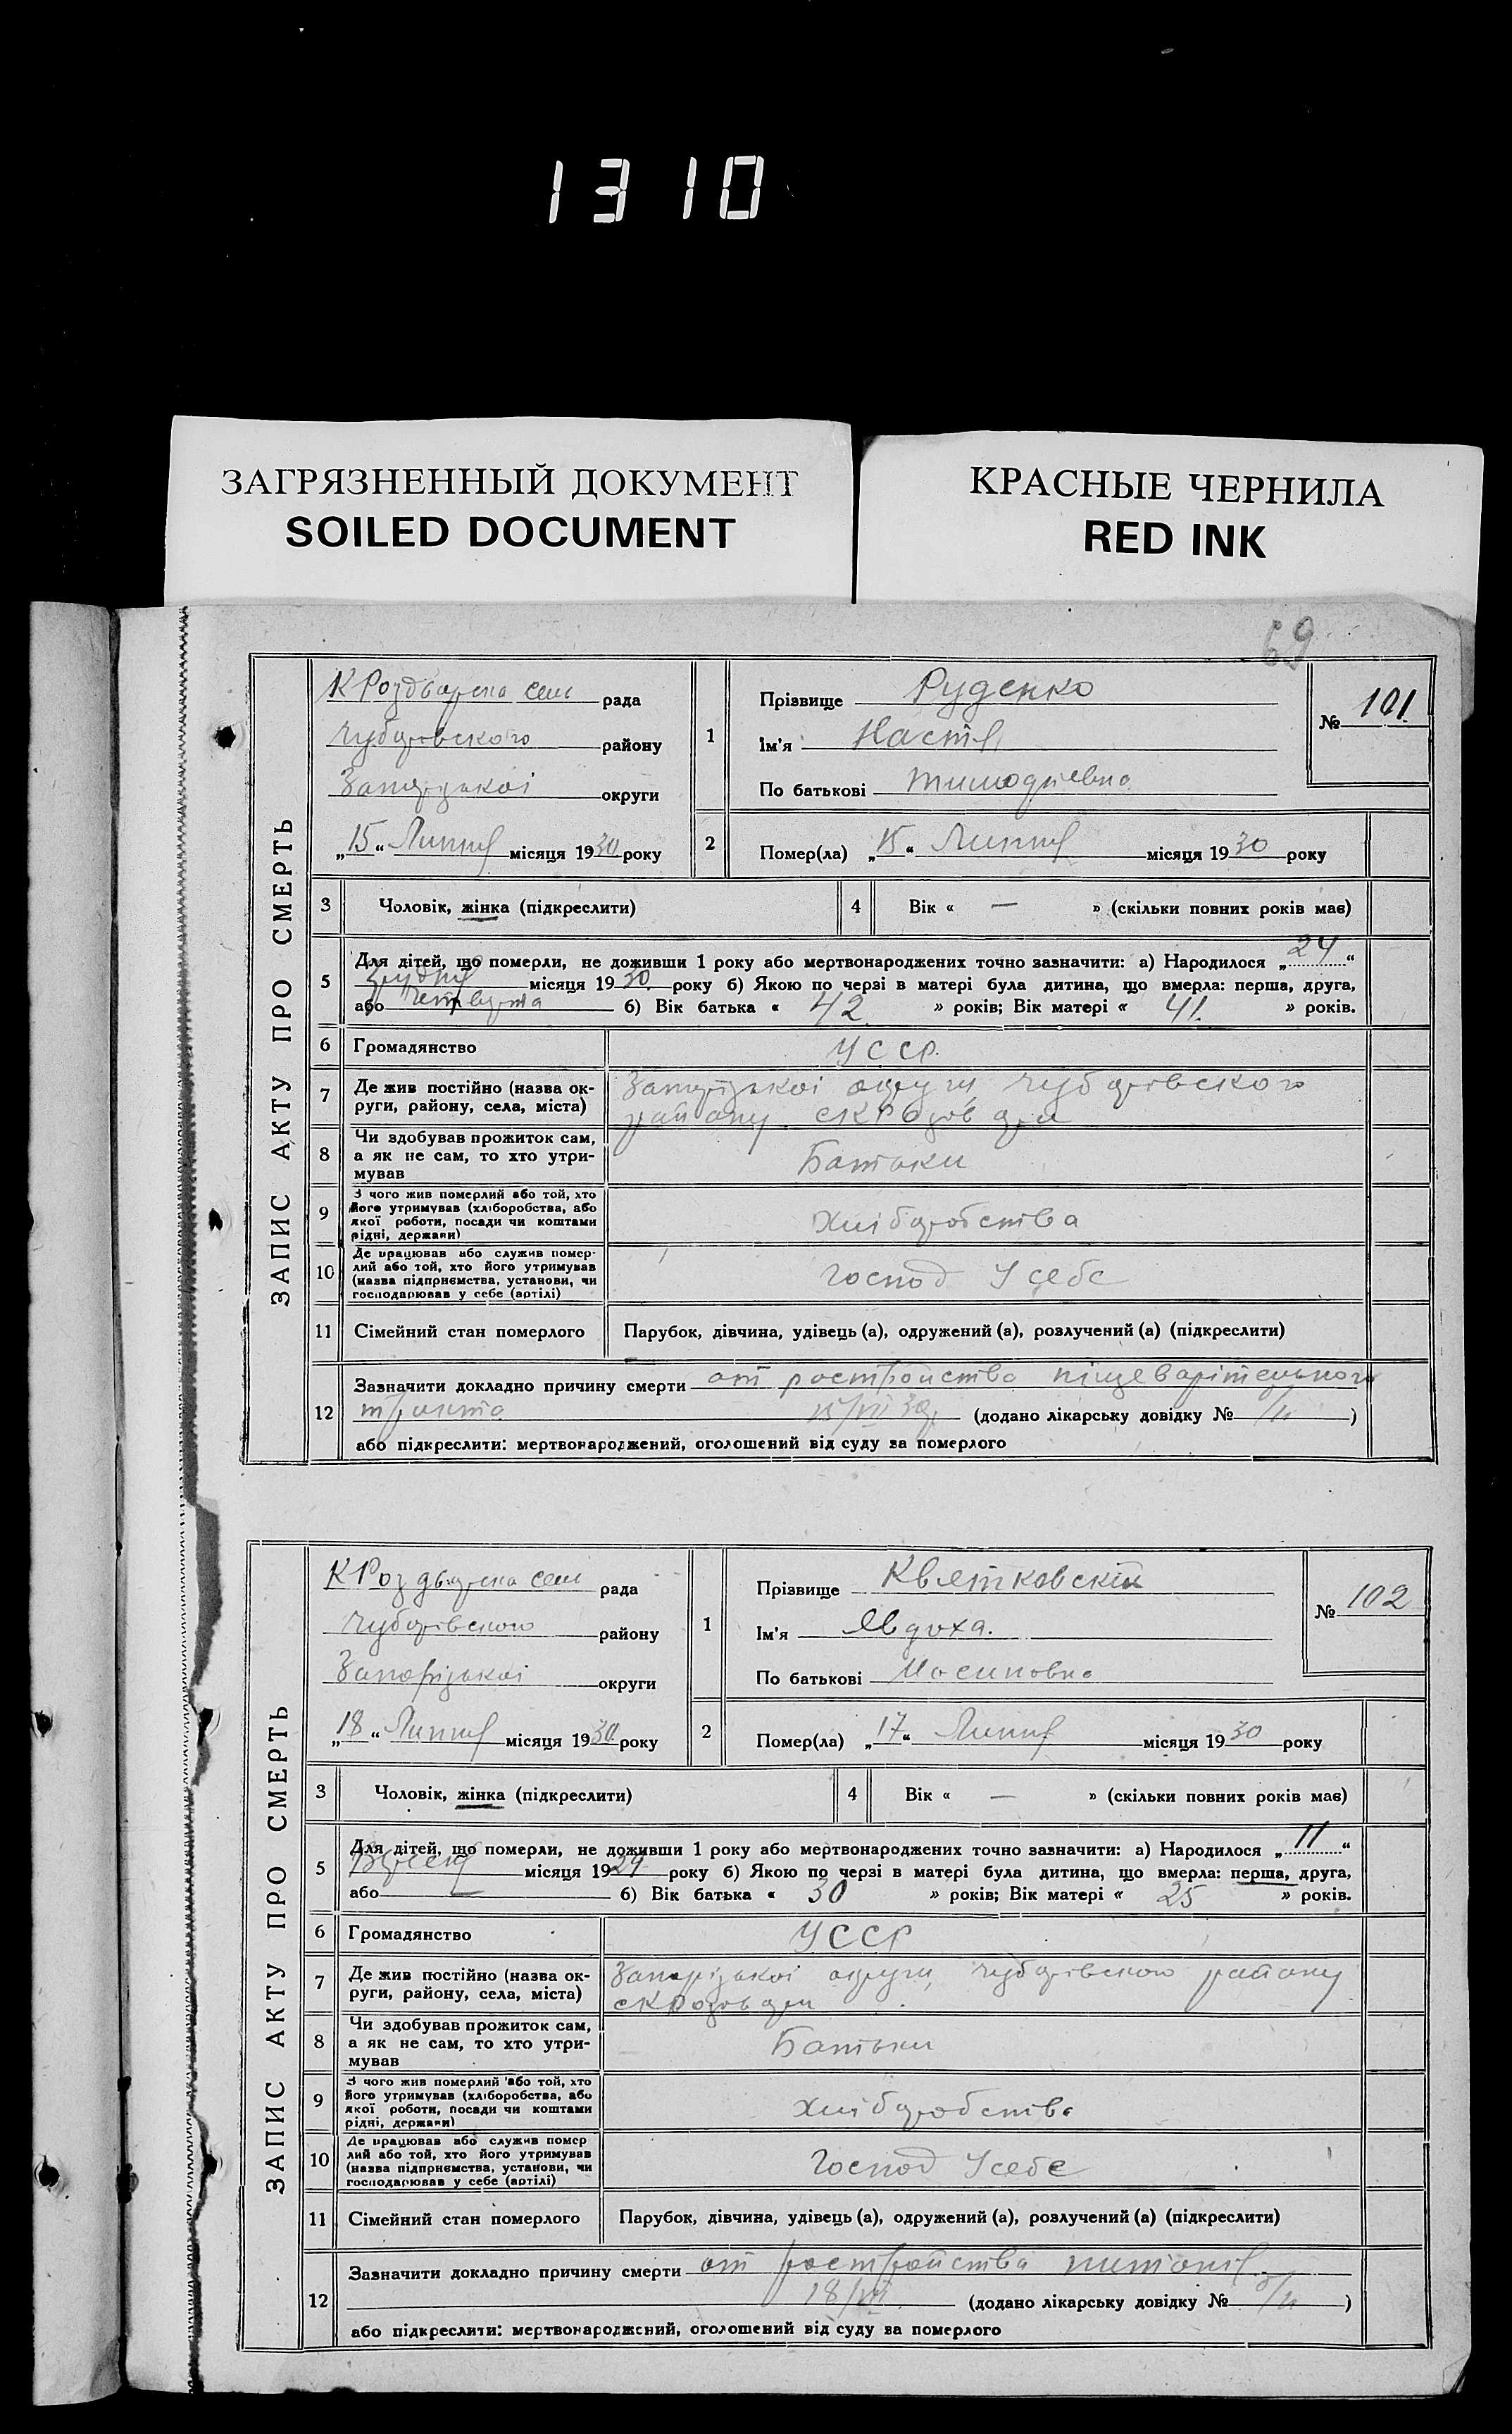 1310
ЗАГРЯЗНЕННЫЙ ДОКУМЕНТ
SOILED DOCUMENT
КРАСНЫЕ ЧЕРНИЛА
RED INK
69
ЗАПИС АКТУ ПРО СМЕРТЬ
рада
району
округи
„15“ Липня місяця 1930 року
1
Прізвище Руденко
Ім'я Настя
По батькові
№ 101.
2
Помер(ла) „15“ Липня місяця 1930 року
3 Чоловік, жінка (підкреслити)
4 Вік « — » (скільки повних років мав)
5 Для дітей, що померли, не доживши 1 року або мертвонароджених точно зазначити: а) Народилося „24“
місяця 1930 року б) Якою по черзі в матері була дитина, що вмерла: перша, друга,
або четверта б) Вік батька « 42 » років; Вік матері « 41. » років.
6 Громадянство УССР.
7 Де жив постійно (назва ок-
руги, району, села, міста)
Запорізькоі округи, Чубарівського
району
8 Чи здобував прожиток сам,
а як не сам, то хто утри-
мував
Батьки
9 З чого жив померлий або той, хто
його утримував (хліборобства, або
якої роботи, посади чи коштами
рідні, держави)
Хліборобства
10 Де працював або служив помер-
лий або той, хто його утримував
(назва підприємства, установи, чи
господарював у себе (артілі)
Господ Усебе
11 Сімейний стан померлого Парубок, дівчина, удівець (а), одружений (а), розлучений (а) (підкреслити)
12 Зазначити докладно причину смерти от растройства піщеварітельного
тракта 15/VII 30р. (додано лікарську довідку № )
або підкреслити: мертвонароджений, оголошений від суду за померлого
ЗАПИС АКТУ ПРО СМЕРТЬ
рада
Чубарівского району
Запорізькоі округи
„18“ Липня місяця 1930 року
1
Прізвище Квятковскій
Ім'я Явдоха.
По батькові Иосиповна
№ 102
2
Помер(ла) „17“ Липня місяця 1930 року
3 Чоловік, жінка (підкреслити)
4 Вік « — » (скільки повних років мав)
5 Для дітей, що померли, не доживши 1 року або мертвонароджених точно зазначити: а) Народилося „11“
місяця 1929 року б) Якою по черзі в матері була дитина, що вмерла: перша, друга,
або — б) Вік батька « 30 » років; Вік матері « 25 » років.
6 Громадянство УССР
7 Де жив постійно (назва ок-
руги, району, села, міста)
Запорізькоі округи, Чубарівского району
8 Чи здобував прожиток сам,
а як не сам, то хто утри-
мував
Батьки
9 З чого жив померлий або той, хто
його утримував (хліборобства, або
якої роботи, посади чи коштами
рідні, держави)
Хліборобства
10 Де працював або служив помер
лий або той, хто його утримував
(назва підприємства, установи, чи
господарював у себе (артілі)
Господ Усебе
11 Сімейний стан померлого Парубок, дівчина, удівець (а), одружений (а), розлучений (а) (підкреслити)
12 Зазначити докладно причину смерти от растройства питанія
18/VII. (додано лікарську довідку № )
або підкреслити: мертвонароджений, оголошений від суду за померлого